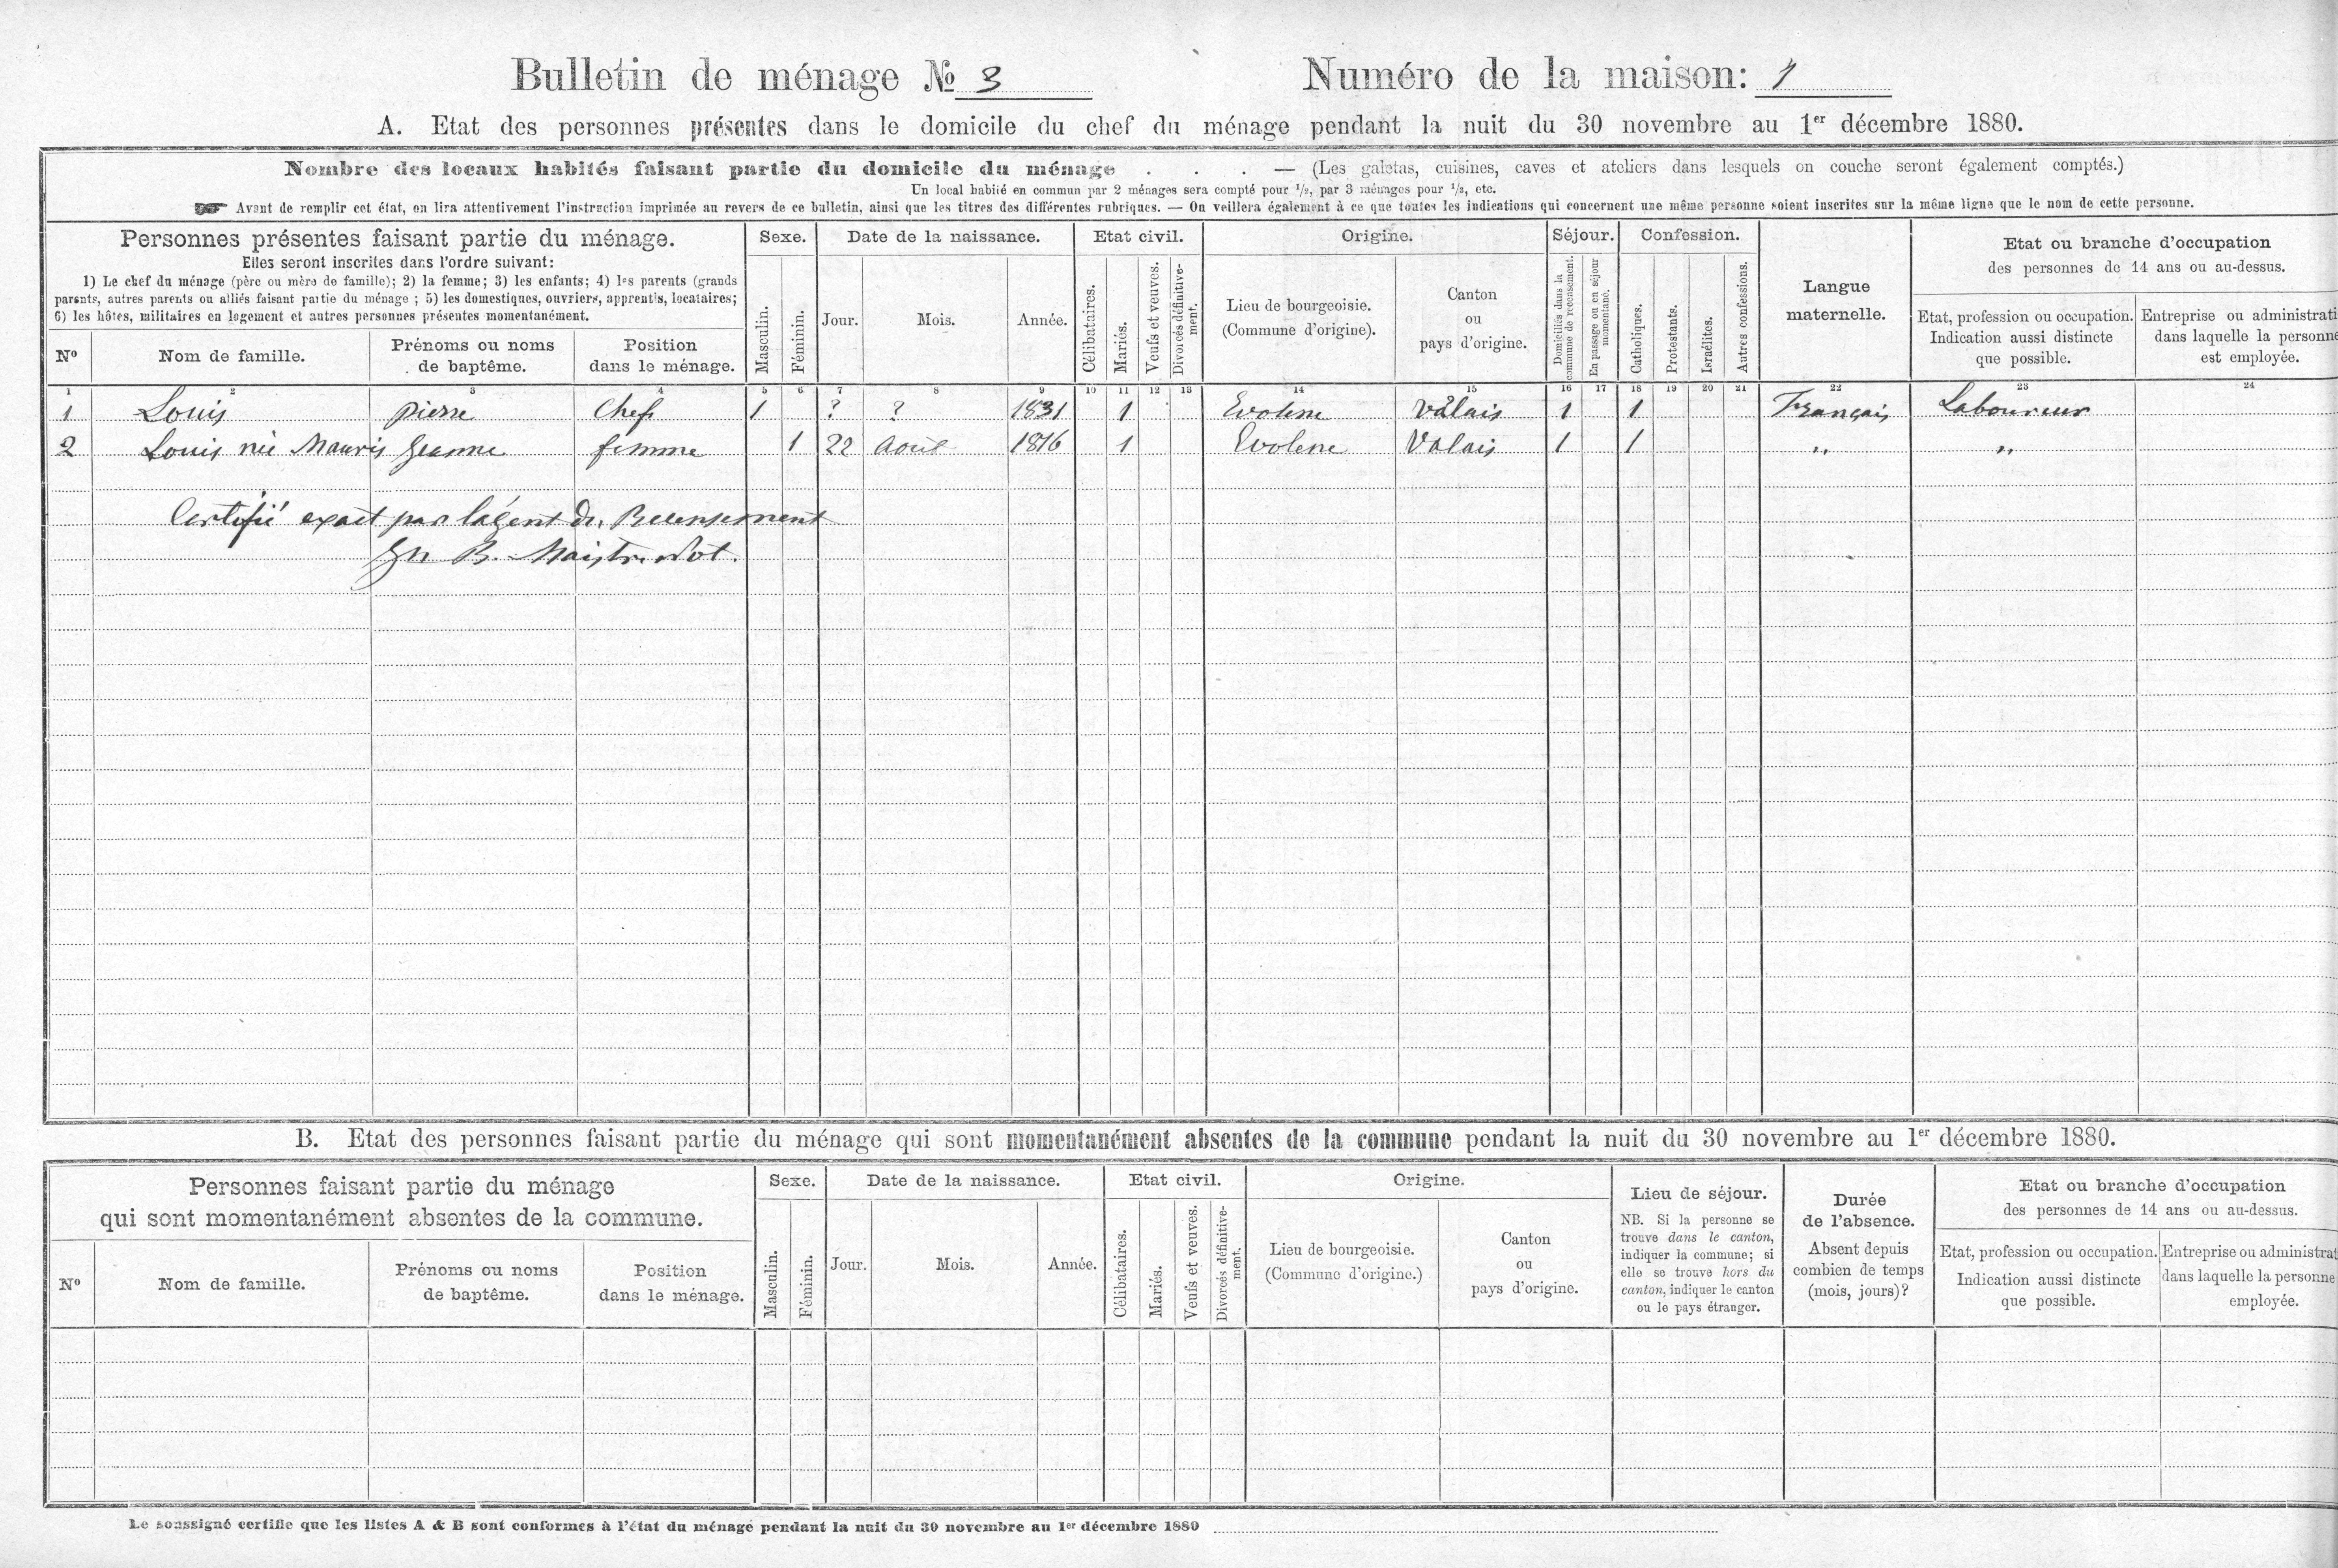 Bulletin de ménage № 3 Numéro de la maison: 1
A. Etat des personnes présentes dans le domicile du chef du ménage pendant la nuit du 30 novembre au 1er décembre 1880.
Nombre des locaux habités faisant partie du domicile du ménage . . . — (Les galetas, cuisines, caves et ateliers dans lesquels on couche seront également comptés.)
Un local habité en commun par 2 ménages sera compté pour 1/2, par 3 ménages pour 1/3, etc.
☛ Avant de remplir cet état, on lira attentivement l'instruction imprimée au revers de ce bulletin, ainsi que les titres des différentes rubriques. — On veillera également à ce que toutes les indications qui concernent une même personne soient inscrites sur la même ligne que le nom de cette personne.
Personnes présentes faisant partie du ménage.
Elles seront inscrites dans l'ordre suivant:
1) Le chef du ménage (père ou mère de famille); 2) la femme; 3) les enfants; 4) les parents (grands
parents, autres parents ou alliés faisant partie du ménage ; 5) les domestiques, ouvriers, apprentis, locataires;
6) les hôtes, militaires en logement et autres personnes présentes momentanément.
No
Nom de famille.
Prénoms ou noms
de baptême.
Position
dans le ménage.
Sexe.
Masculin.
Féminin.
Date de la naissance.
Jour.
Mois.
Année.
Etat civil.
Célibataires.
Mariés.
Veufs et veuves.
Divorcés définitive-
ment.
Origine.
Lieu de bourgeoisie.
(Commune d'origine).
Canton
ou
pays d'origine.
Séjour.
Domiciliés dans la
commune de recensement.
En passage ou en séjour
momentané.
Confession.
Catholiques.
Protestants.
Israélites.
Autres confessions.
Langue
maternelle.
Etat ou branche d'occupation
des personnes de 14 ans ou au-dessus.
Etat, profession ou occupation.
Indication aussi distincte
que possible.
Entreprise ou administrati
dans laquelle la personne
est employée.
1 2 3 4 5 6 7 8 9 10 11 12 13 14 15 16 17 18 19 20 21 22 23 24
1 Louis pierre Chef 1 ? ? 1831 1 Evolene Valais 1 1 Français Laboureur
2 Louis née Mauris Jeanne femme 1 22 Août 1816 1 Evolene Valais 1 1 " "
Certifié exact par l'agent de Recensement
B. Maistre Not.
B. Etat des personnes faisant partie du ménage qui sont momentanément absentes de la commune pendant la nuit du 30 novembre au 1er décembre 1880.
Personnes faisant partie du ménage
qui sont momentanément absentes de la commune.
No
Nom de famille.
Prénoms ou noms
de baptême.
Position
dans le ménage.
Sexe.
Masculin.
Féminin.
Date de la naissance.
Jour.
Mois.
Année.
Etat civil.
Célibataires.
Mariés.
Veufs et veuves.
Divorcés définitive-
ment.
Origine.
Lieu de bourgeoisie.
(Commune d'origine.)
Canton
ou
pays d'origine.
Lieu de séjour.
NB. Si la personne se
trouve dans le canton,
indiquer la commune; si
elle se trouve hors du
canton, indiquer le canton
ou le pays étranger.
Durée
de l'absence.
Absent depuis
combien de temps
(mois, jours)?
Etat ou branche d'occupation
des personnes de 14 ans ou au-dessus.
Etat, profession ou occupation.
Indication aussi distincte
que possible.
Entreprise ou administrat
dans laquelle la personne
employée.
Le soussigné certifie que les listes A & B sont conformes à l'état du ménage pendant la nuit du 30 novembre au 1er décembre 1880